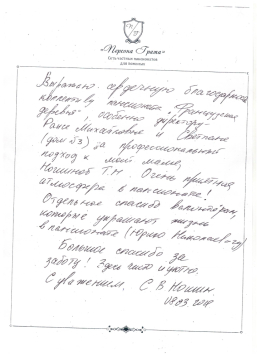 «Персона Грата»
Сеть частных пансионатов
для пожилых
Выражаю сердечную благодарность
коллективу пансионата "Французская
деревня", особенно директору
Раисе Михайловне и Светлане
(дом №3) за профессиональный
подход к моей маме,
Ношиной Т.Н. Очень приятная
атмосфера в пансионате!
Отдельное спасибо волонтёрам,
которые украшают жизнь
в пансионате (Юрию Николаевичу)
Большое спасибо за
заботу! Здесь чисто и уютно.
С уважением, С В Ношин
09.03.2019